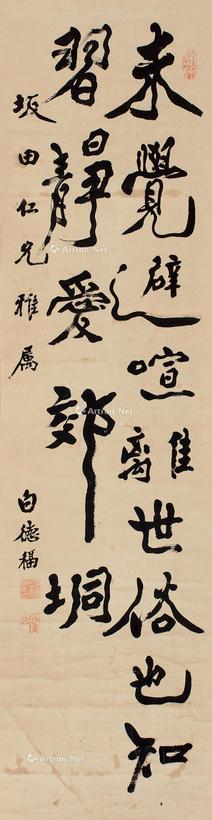 未覺避喧離世俗也知
習靜愛郊坰
坂田仁兄雅屬
白德福
Artron.Net